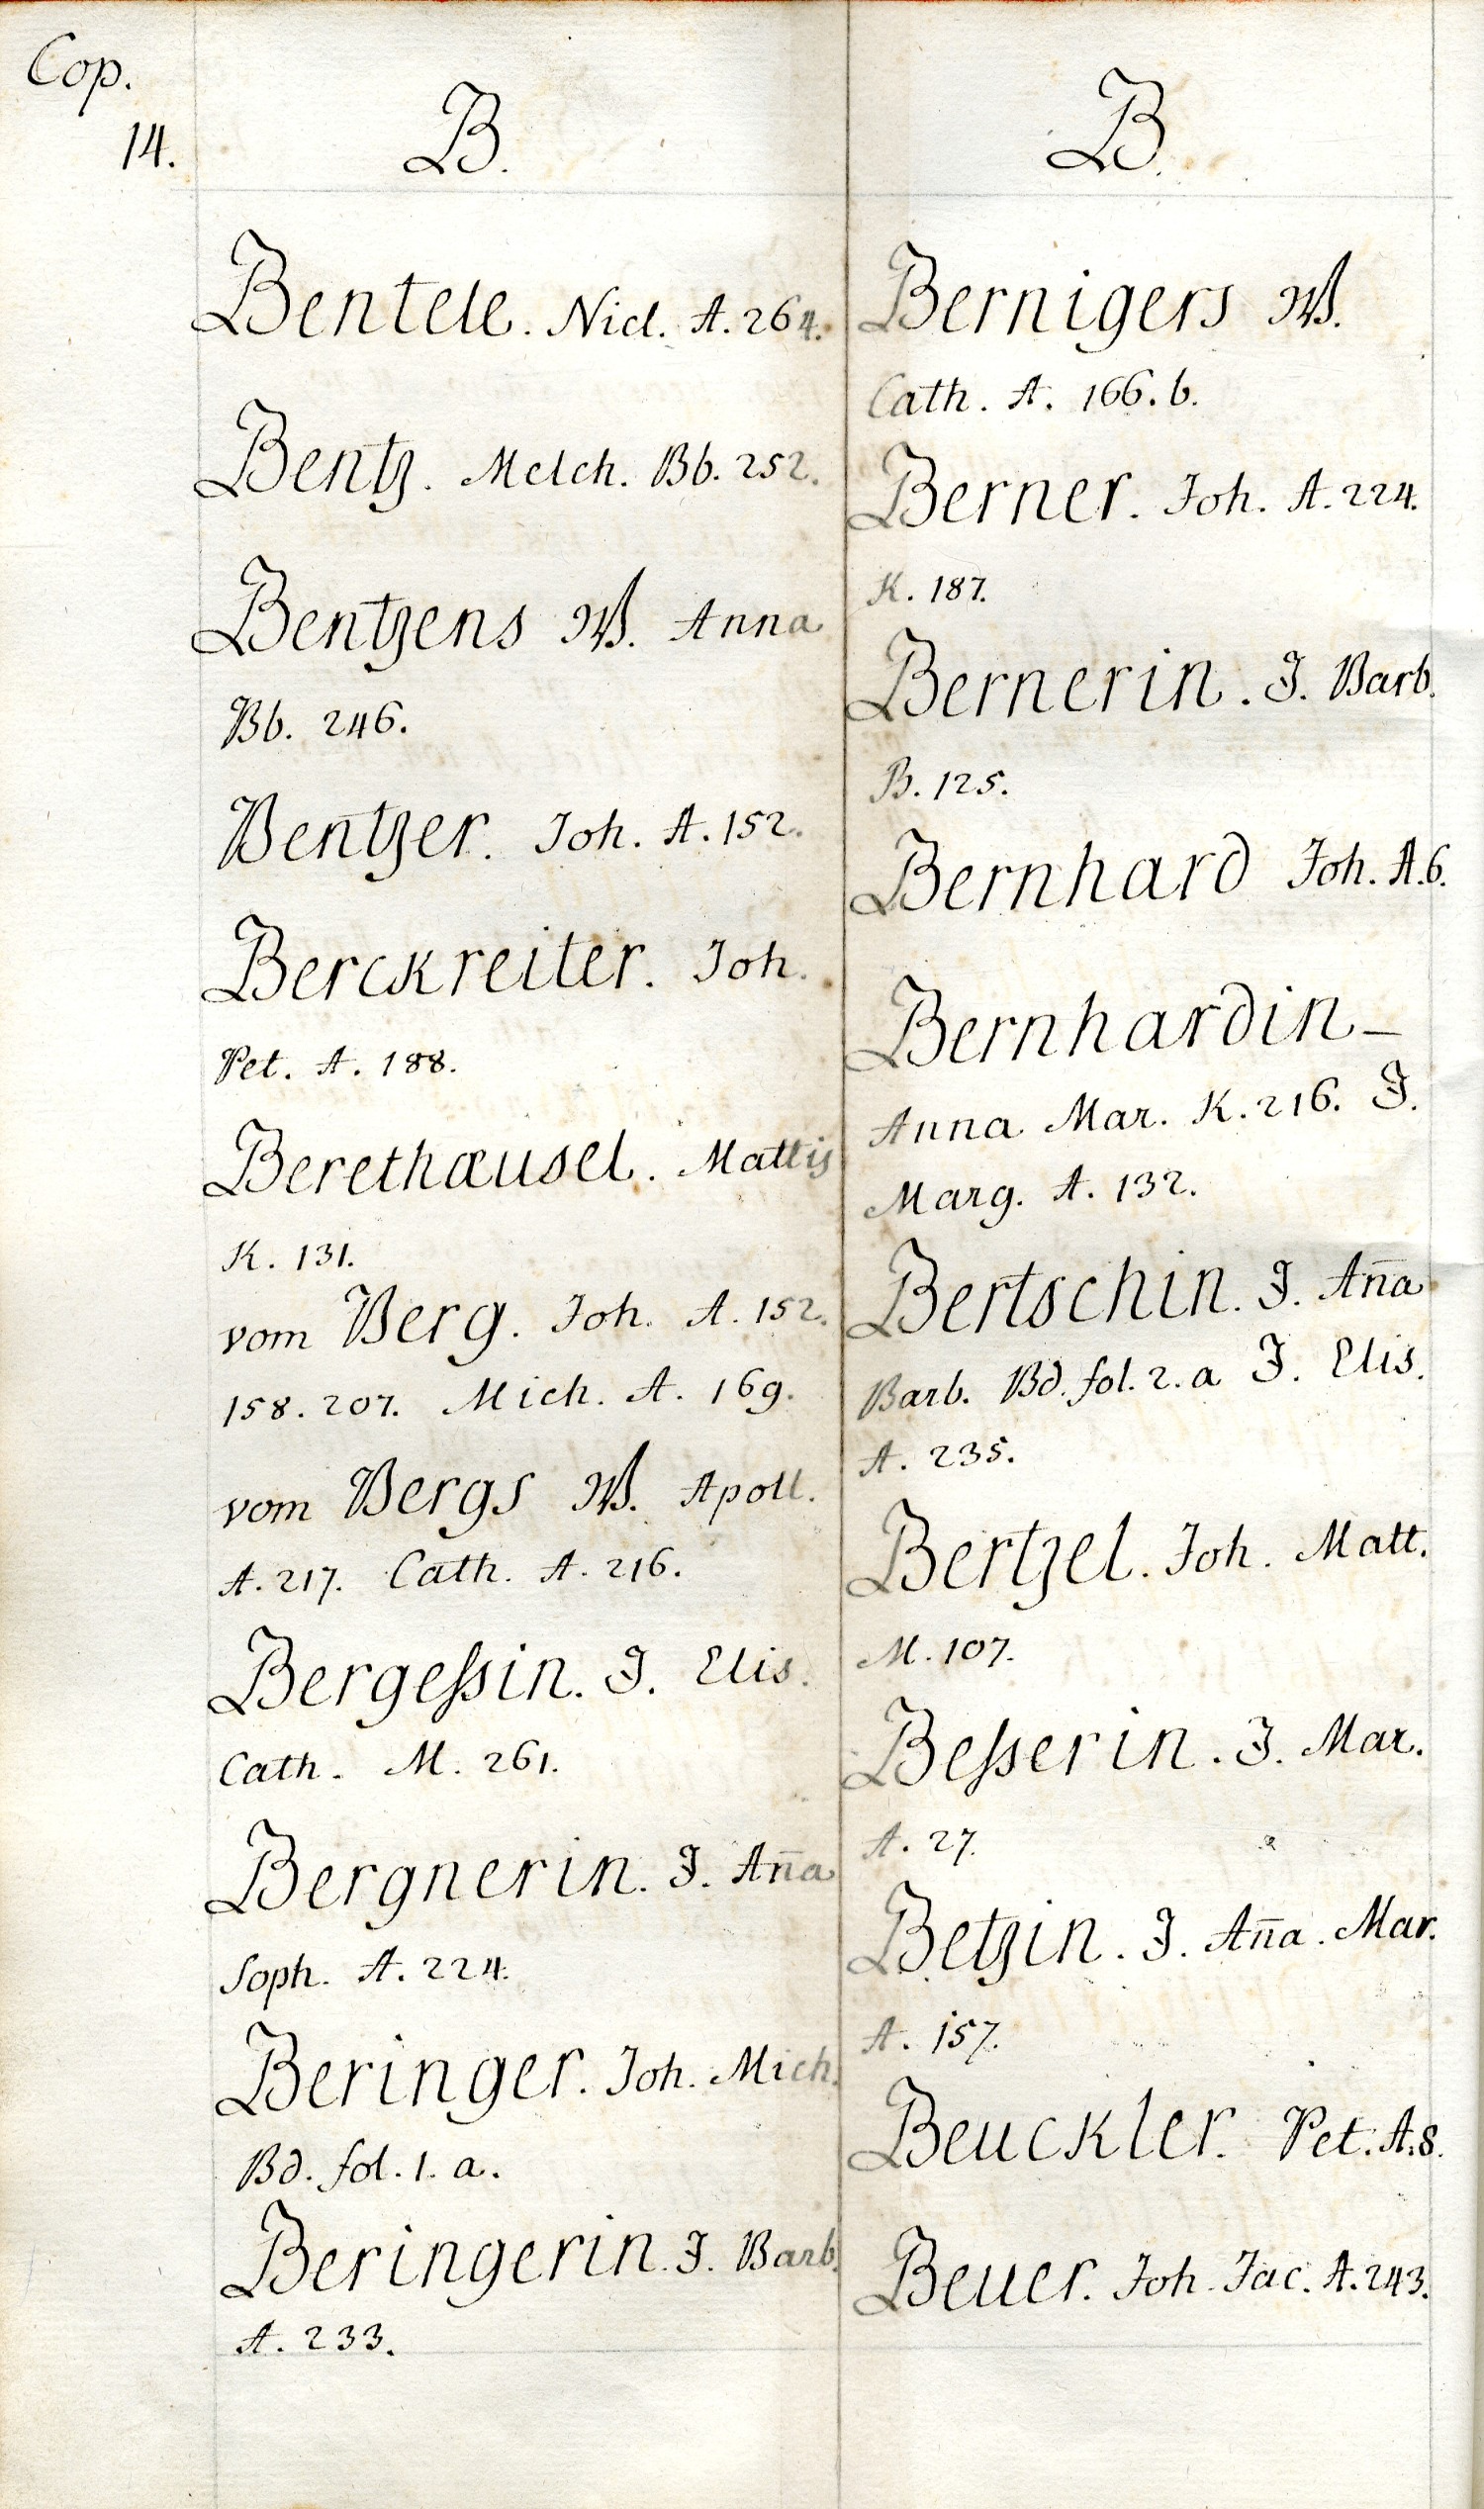 Cop.
14.
B.
Bentele. Nicl. A. 264.
Bentz. Melch. Bb. 252.
Bentzens W. Anna
Bb. 246.
Bentzer. Joh. A. 152.
Berckreiter. Joh.
Pet. A. 188.
Berethæusel. Mattis
K. 131.
vom Berg. Joh. A. 152.
158. 207. Mich. A. 169.
vom Bergs W. Apoll.
A. 217. Cath. A. 216.
Bergeſsin. J. Elis.
Cath. M. 261.
Bergnerin. J. Ana̅
Soph. A. 224.
Beringer. Joh. Mich.
Bd. fol. 1. a.
Beringerin. J. Barb.
A. 233.
B.
Bernigers W.
Cath. A. 166. b.
Berner. Joh. A. 224.
K. 187.
Bernerin. J. Barb.
B. 125.
Bernhard Joh. A. 6.
Bernhardin –
Anna Mar. K. 216. J.
Marg. A. 132.
Bertschin. J. An̅a
Barb. Bd. fol. 2. a J. Elis.
A. 235.
Bertzel. Joh. Matt.
M. 107.
Beſserin. J. Mar.
A. 27.
Betzin. J. An̅a. Mar.
A. 157.
Beuckler. Pet. A. 8.
Beuer. Joh. Jac. A. 243.